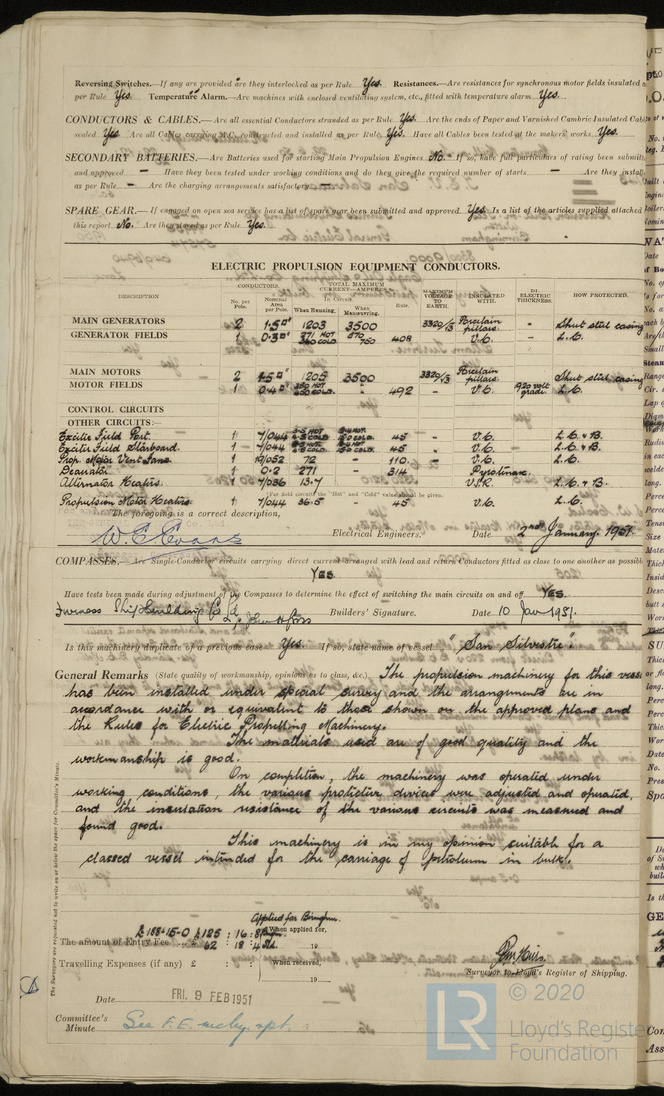 Reversing Switches.—If any are provided are they interlocked as per Rule Yes. Resistances.—Are resistances for synchronous motor fields insulated
per Rule Yes. Temperature Alarm.—Are machines with enclosed ventilating system, etc., fitted with temperature alarm Yes.
CONDUCTORS & CABLES.—Are all essential Conductors stranded as per Rule Yes. Are the ends of Paper and Varnished Cambric Insulated Cab
sealed Yes. Are all Cables carrying A.C. constructed and installed as per Rule Yes. Have all Cables been tested at the makers' works Yes.
SECONDARY BATTERIES.—Are Batteries used for starting Main Propulsion Engines No. If so, have full particulars of rating been submitt
and approved — Have they been tested under working conditions and do they give the required number of starts — Are they install
as per Rule — Are the charging arrangements satisfactory —
SPARE GEAR.—If engaged on open sea service has a list of spare gear been submitted and approved Yes. Is a list of the articles supplied attached
this report. No. Are they stored as per Rule Yes.
ELECTRIC PROPULSION EQUIPMENT CONDUCTORS.
DESCRIPTION CONDUCTORS. No. per Pole. Nominal Area per Pole. TOTAL MAXIMUM CURRENT—AMPERES. In Circuit When Running. When Manœuvring. Rule. MAXIMUM VOLTAGE TO EARTH. INSULATED WITH. DI-ELECTRIC THICKNESS. HOW PROTECTED.
MAIN GENERATORS 2 1.5□" 1203 3500 3320/√3 Porcelain pillars. - Sheet steel casing
GENERATOR FIELDS 1 0.3□" 271 HOT 408 - V.C. - L.C.
MAIN MOTORS 2 1.5□" 1205 3500 3320/√3 Porcelain pillars. - Sheet steel casing
MOTOR FIELDS 1 0.4□" - 492 - V.C. L.C.
CONTROL CIRCUITS
OTHER CIRCUITS:—
Exciter Field Port. 1 7/044 45 - V.C. L.C. & B.
Exciter Field Starboard. 1 7/044 45 - V.C. L.C. & B.
Prop. Motor Vent Fans. 1 19/052 72 - 110. - V.C. L.C.
Deaerator 1 0.2 271 - 314 Pyrotenax.
Alternator Heaters. 1 7/036 13.7 V.I.R. L.C. & B.
(For field circuits the "Hot" and "Cold" values should be given.)
Propulsion Motor Heaters. 1 7/044 36.5 - 45 V.C. L.C.
The foregoing is a correct description,
W. E. Evans Electrical Engineers. Date 2nd January. 1951.
COMPASSES.—Are Single-Conductor circuits carrying direct current arranged with lead and return Conductors fitted as close to one another as possib
Yes.
Have tests been made during adjustment of the Compasses to determine the effect of switching the main circuits on and off Yes.
Furness Shipbuilding Co Ld Builders' Signature. Date 10 Jan 1951.
Is this machinery duplicate of a previous case Yes. If so, state name of vessel "San Silvestre".
General Remarks (State quality of workmanship, opinions as to class, &c.) The propulsion machinery for this vess
has been installed under special survey and the arrangements are in
accordance with or equivalent to those shown on the approved plans and
the Rules for Electric Propelling Machinery.
The materials used are of good quality and the
workmanship is good.
On completion, the machinery was operated under
working conditions, the various protective devices were adjusted and operated,
and the insulation resistance of the various circuits was measured and
found good.
This machinery is in my opinion suitable for a
classed vessel intended for the carriage of petroleum in bulk.
The Surveyors are requested not to write on or below the space for Committee's Minute.
Applied for Bingham.
£188-15-0 £125 : 16 : 8 When applied for,
The amount of Entry Fee ... £ 62 : 18 : 4 19
Travelling Expenses (if any) £ : : When received,
19
Surveyor to Lloyd's Register of Shipping.
Date FRI. 9 FEB 1951
Committee's
Minute See F.E. mchy. rpt.
© 2020
LR Lloyd's Register
Foundation